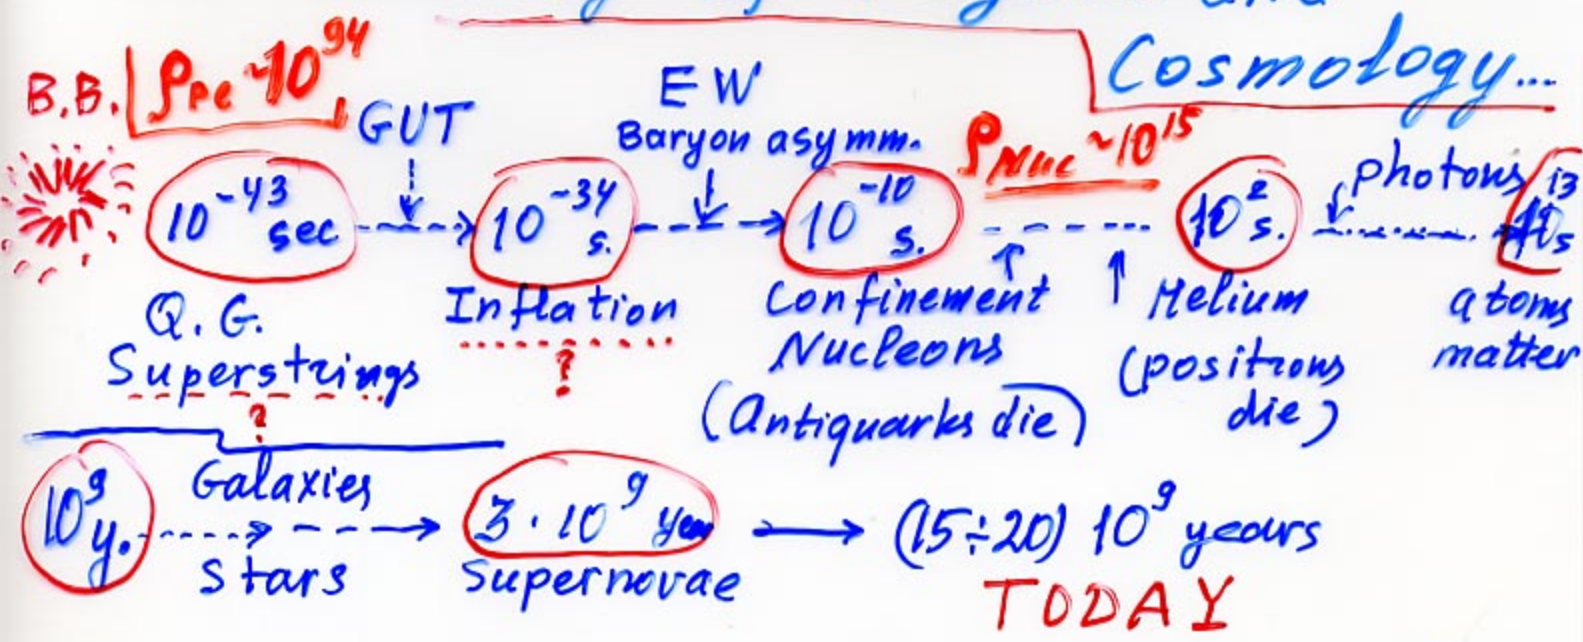 Cosmology...
B.B. ρpc ~10^94
GUT
EW
Baryon asymm.
ρNuc ~10^15
photons
10^-43 sec
10^-34 s.
10^-10 s.
10^2 s.
10^13 s
Q.G.
Superstrings
?
Inflation
?
Confinement
Nucleons
(Antiquarks die)
Helium
(positrons
die)
atoms
matter
10^9 y.
Galaxies
Stars
3·10^9 yea
Supernovae
(15÷20) 10^9 years
TODAY